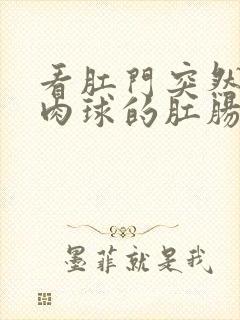 看肛門突然
肉球的肛腸
墨菲就是我